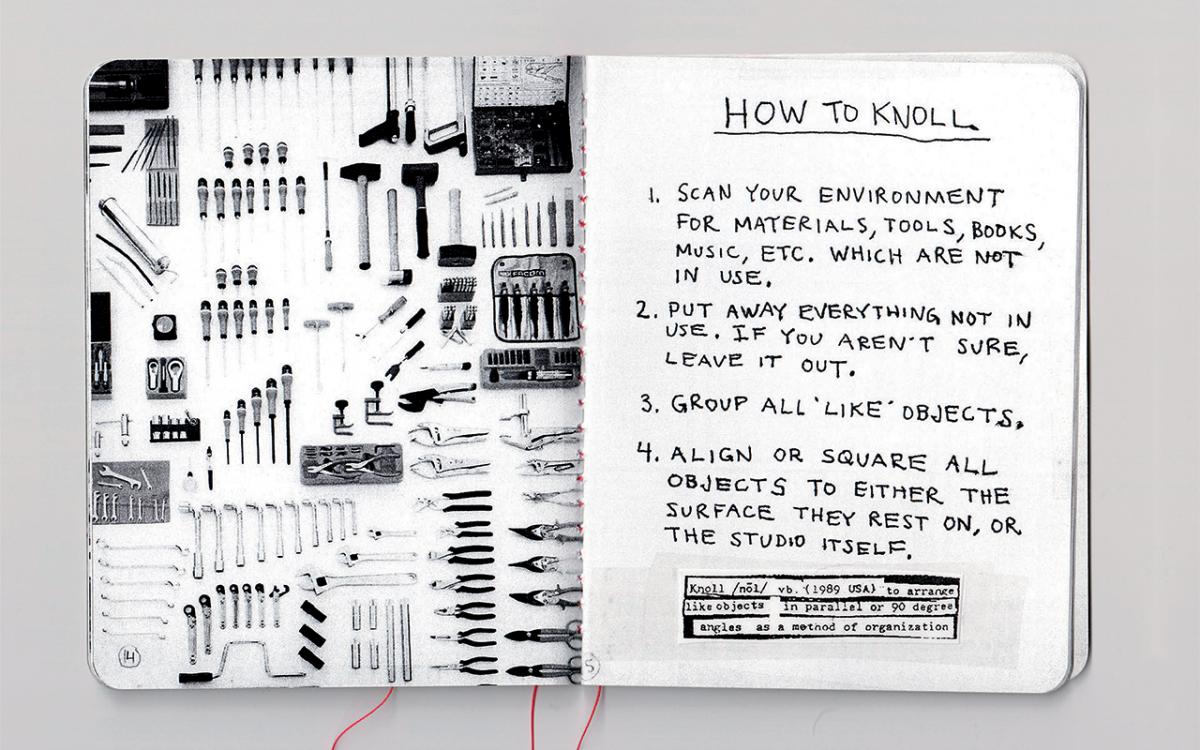 FACOM
14
HOW TO KNOLL.
1. SCAN YOUR ENVIRONMENT
FOR MATERIALS, TOOLS, BOOKS,
MUSIC, ETC. WHICH ARE NOT
IN USE.
2. PUT AWAY EVERYTHING NOT IN
USE. IF YOU AREN'T SURE,
LEAVE IT OUT.
3. GROUP ALL 'LIKE' OBJECTS.
4. ALIGN OR SQUARE ALL
OBJECTS TO EITHER THE
SURFACE THEY REST ON, OR
THE STUDIO ITSELF.
Knoll /nōl/ vb. (1989 USA) to arrange
like objects in parallel or 90 degree
angles as a method of organization
5